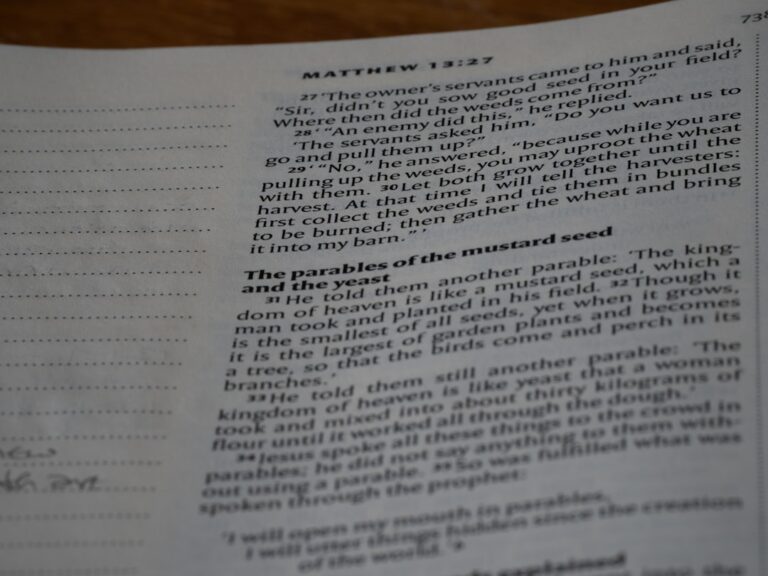 738
MATTHEW 13:27
27 ‘The owner’s servants came to him and said,
“Sir, didn’t you sow good seed in your field?
Where then did the weeds come from?”
28 ‘ “An enemy did this,” he replied.
‘The servants asked him, “Do you want us to
go and pull them up?”
29 ‘ “No,” he answered, “because while you are
pulling up the weeds, you may uproot the wheat
with them. 30 Let both grow together until the
harvest. At that time I will tell the harvesters:
first collect the weeds and tie them in bundles
to be burned; then gather the wheat and bring
it into my barn.” ’
The parables of the mustard seed
and the yeast
31 He told them another parable: ‘The king-
dom of heaven is like a mustard seed, which a
man took and planted in his field. 32 Though it
is the smallest of all seeds, yet when it grows,
it is the largest of garden plants and becomes
a tree, so that the birds come and perch in its
branches.’
33 He told them still another parable: ‘The
kingdom of heaven is like yeast that a woman
took and mixed into about thirty kilograms of
flour until it worked all through the dough.’
34 Jesus spoke all these things to the crowd in
parables; he did not say anything to them with-
out using a parable. 35 So was fulfilled what was
spoken through the prophet:
‘I will open my mouth in parables,
I will utter things hidden since the creation
of the world.’
explained
into the